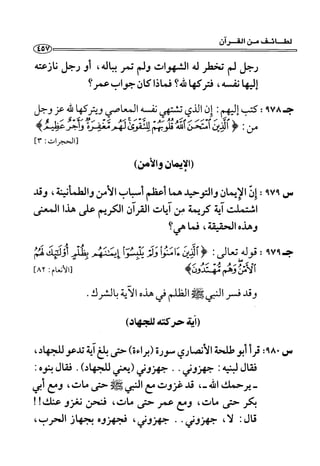 لطائف من القرآن
٤٥٧
رجل لم تخطر له الشهوات ولم تمر بباله، أو رجل نازعته
إليها نفسه، فتركها لله؟ فماذا كان جواب عمر؟
جـ ٩٧٨: كتب إليهم: إن الذي تشتهي نفسه المعاصي ويتركها لله عز وجل
من: ﴿ ٱلَّذِينَ ٱمْتَحَنَ ٱللَّهُ قُلُوبَهُمْ لِلتَّقْوَىٰ لَهُم مَّغْفِرَةٌ وَأَجْرٌ عَظِيمٌ ﴾
[الحجرات: ٣]
(الإيمان والأمن)
س ٩٧٩: إنّ الإيمان والتوحيد هما أعظم أسباب الأمن والطمأنينة، وقد
اشتملت آية كريمة من آيات القرآن الكريم على هذا المعنى
وهذه الحقيقة، فما هي؟
جـ ٩٧٩: قوله تعالى: ﴿ ٱلَّذِينَ ءَامَنُوا۟ وَلَمْ يَلْبِسُوٓا۟ إِيمَٰنَهُم بِظُلْمٍ أُو۟لَٰٓئِكَ لَهُمُ
ٱلْأَمْنُ وَهُم مُّهْتَدُونَ ﴾ [الأنعام: ٨٢]
وقد فسر النبي ﷺ الظلم في هذه الآية بالشرك.
(آية حركته للجهاد)
س ٩٨٠: قرأ أبو طلحة الأنصاري سورة (براءة) حتى بلغ آية تدعو للجهاد،
فقال لبنيه: جهزوني.. جهزوني (يعني للجهاد). فقال بنوه:
ـ يرحمك الله ـ، قد غزوت مع النبي ﷺ حتى مات، ومع أبي
بكر حتى مات، ومع عمر حتى مات، فنحن نغزو عنك!!
قال: لا، جهزوني.. جهزوني، فجهزوه بجهاز الحرب،